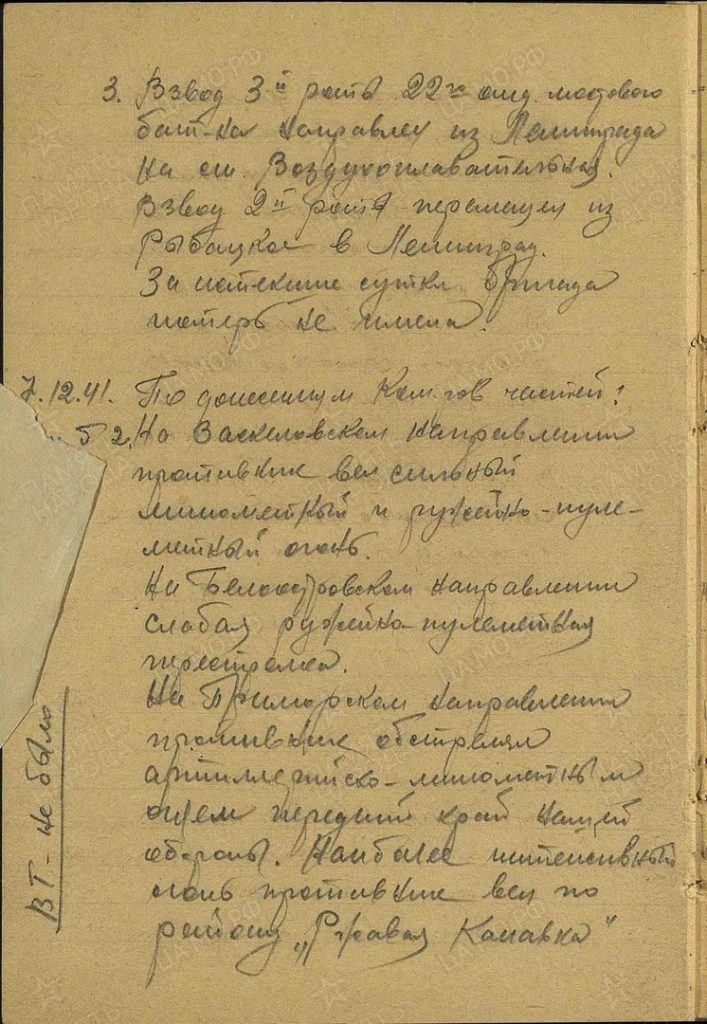 3. Взвод 3й роты 22го отд. мостового
бат-на направлен из Ленинграда
на ст. Воздухоплавательная.
Взвод 2й роты перемещен из
Рыбацкое в Ленинград.
За истекшие сутки бригада
потерь не имела.
7.12.41. По донесениям Ком-гов частей:
2. На Васкеловском направлении
противник вел сильный
минометный и ружейно-пуле-
метный огонь.
На Белоостровском направлении
слабая ружейно-пулеметная
перестрелка.
На Приморском направлении
противник обстрелял
артиллерийско-минометным
огнем передний край нашей
обороны. Наиболее интенсивный
огонь противник вел по
району „Ржавая Канавка"
ВТ - не было